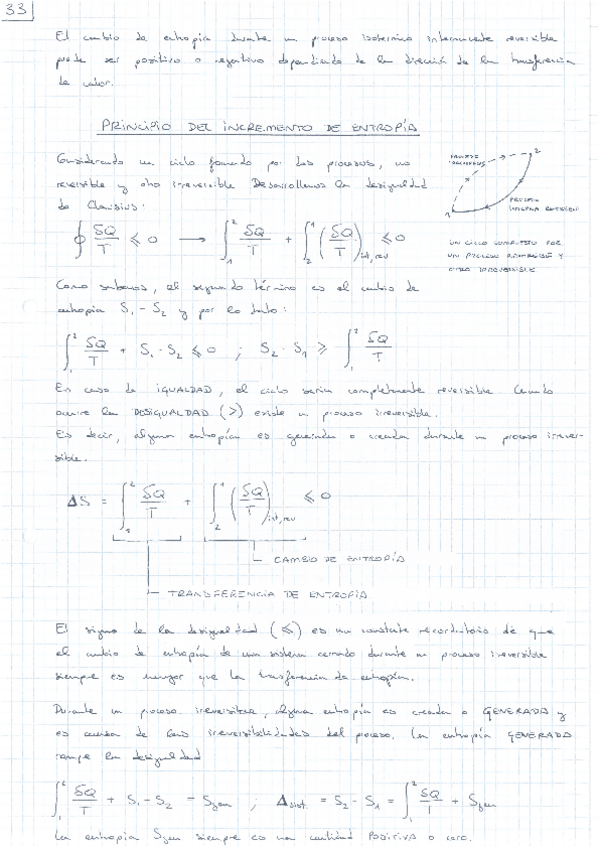 33
El cambio de entropía durante un proceso isotérmico internamente reversible
puede ser positivo o negativo dependiendo de la dirección de la transferencia
de calor.
PRINCIPIO DEL INCREMENTO DE ENTROPÍA
Considerando un ciclo formado por dos procesos, uno
reversible y otro irreversible Desarrollemos la desigualdad
de Clausius:
∮ δQ/T ≤ 0 → ∫₁² δQ/T + ∫₂¹ (δQ/T)int,rev ≤ 0
2
1
UN CICLO COMPUESTO POR
UN PROCESO REVERSIBLE Y
OTRO IRREVERSIBLE
Como sabemos, el segundo término es el cambio de
entropía S₁ - S₂ y por lo tanto:
∫₁² δQ/T + S₁ - S₂ ≤ 0 ; S₂ - S₁ ≥ ∫₁² δQ/T
En caso de IGUALDAD, el ciclo sería completamente reversible Cuando
ocurre la DESIGUALDAD (>) existe un proceso irreversible.
Es decir, alguna entropía es generada o creada durante un proceso irrever-
sible.
ΔS = ∫₁² δQ/T + ∫₂¹ (δQ/T)int,rev ≤ 0
CAMBIO DE ENTROPÍA
TRANSFERENCIA DE ENTROPÍA
El signo de la desigualdad (≤) es un constante recordatorio de que
el cambio de entropía de un sistema cerrado durante un proceso irreversible
siempre es mayor que la transferencia de entropía.
Durante un proceso irreversible, alguna entropía es creada o GENERADA y
es causa de las irreversibilidades del proceso. La entropía GENERADA
rompe la desigualdad
∫₁² δQ/T + S₁ - S₂ = Sgen ; Δsist. = S₂ - S₁ = ∫₁² δQ/T + Sgen
La entropía Sgen siempre es una cantidad POSITIVA o cero.